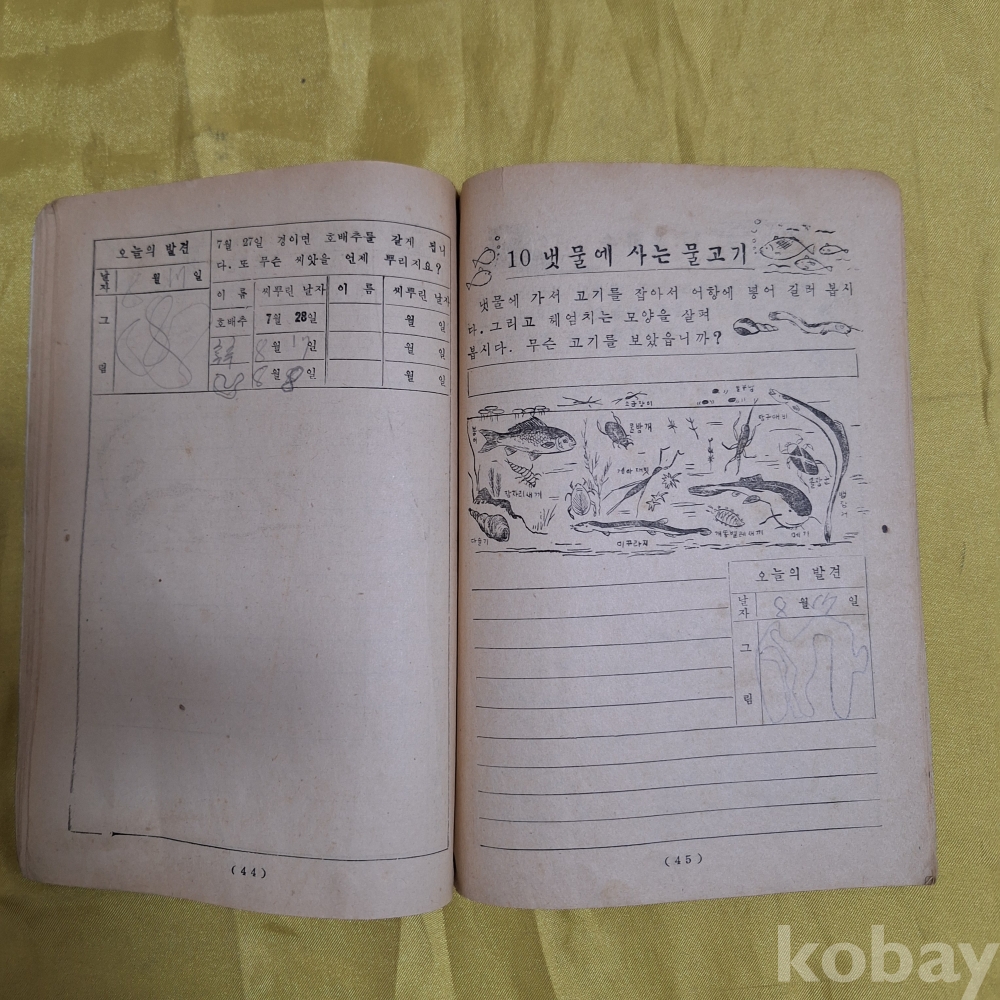 오늘의 발견
날자 월 17 일
그
림
7월 27일 경이면 호배추를 갈게 됩니
다. 또 무슨 씨앗을 언제 뿌리지요?
이 름 씨뿌린 날자 이 름 씨뿌린 날자
호배추 7월 28일 월 일
8월 17일 월 일
8월 8일 월 일
(44)
10 냇물에 사는 물고기
냇물에 가서 고기를 잡아서 어항에 넣어 길러 봅시
다. 그리고 헤엄치는 모양을 살펴
봅시다. 무슨 고기를 보았읍니까?
소금장이
물방개
장구애비
게아재비
물장군
잠자리새끼
뱀장어
다슬기
미꾸라지
메기
오늘의 발견
날자 8월 17일
그
림
(45)
kobay